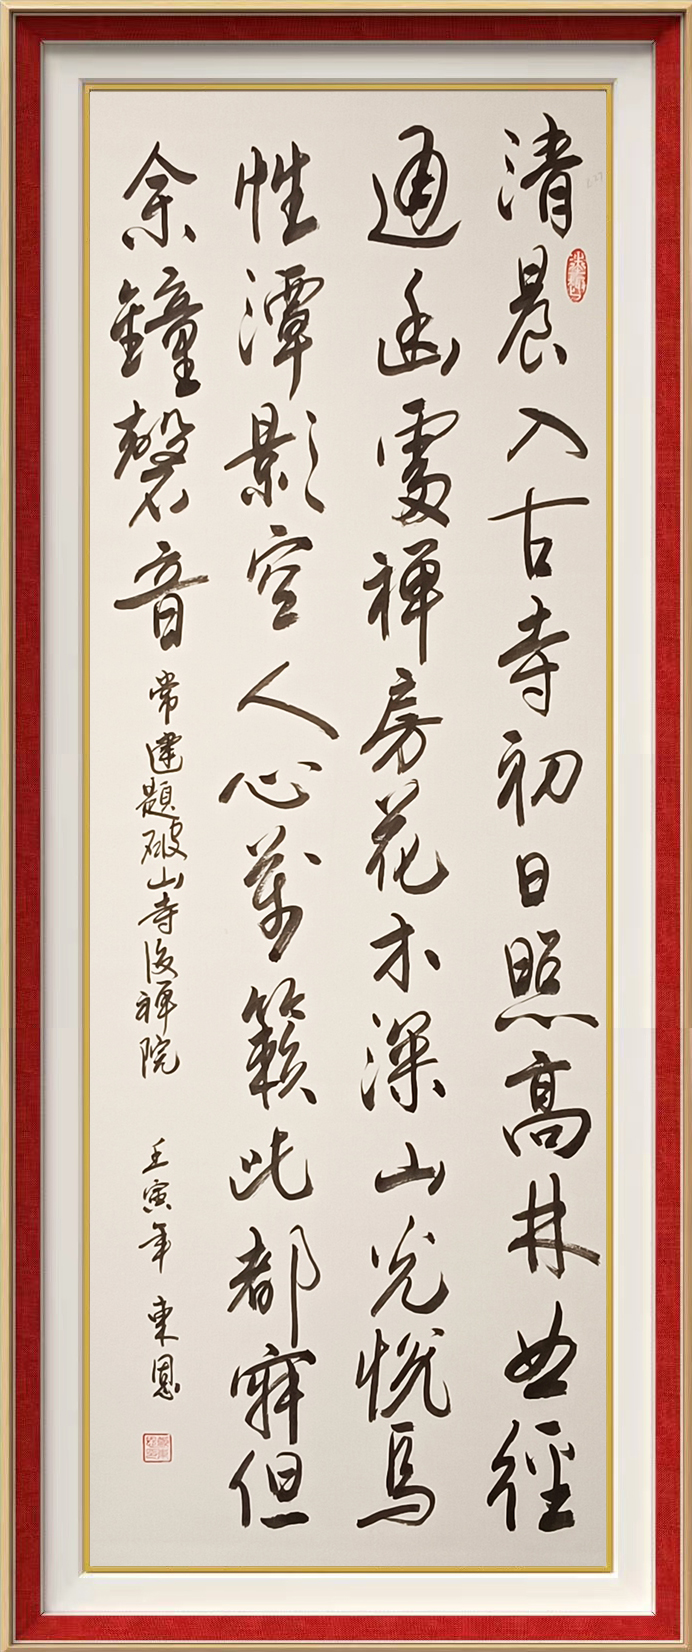 清晨入古寺初日照高林曲徑
通幽處禪房花木深山光悦鳥
性潭影空人心萬籟此都寂但
余鐘磬音 常建題破山寺後禪院 壬寅年 東恩